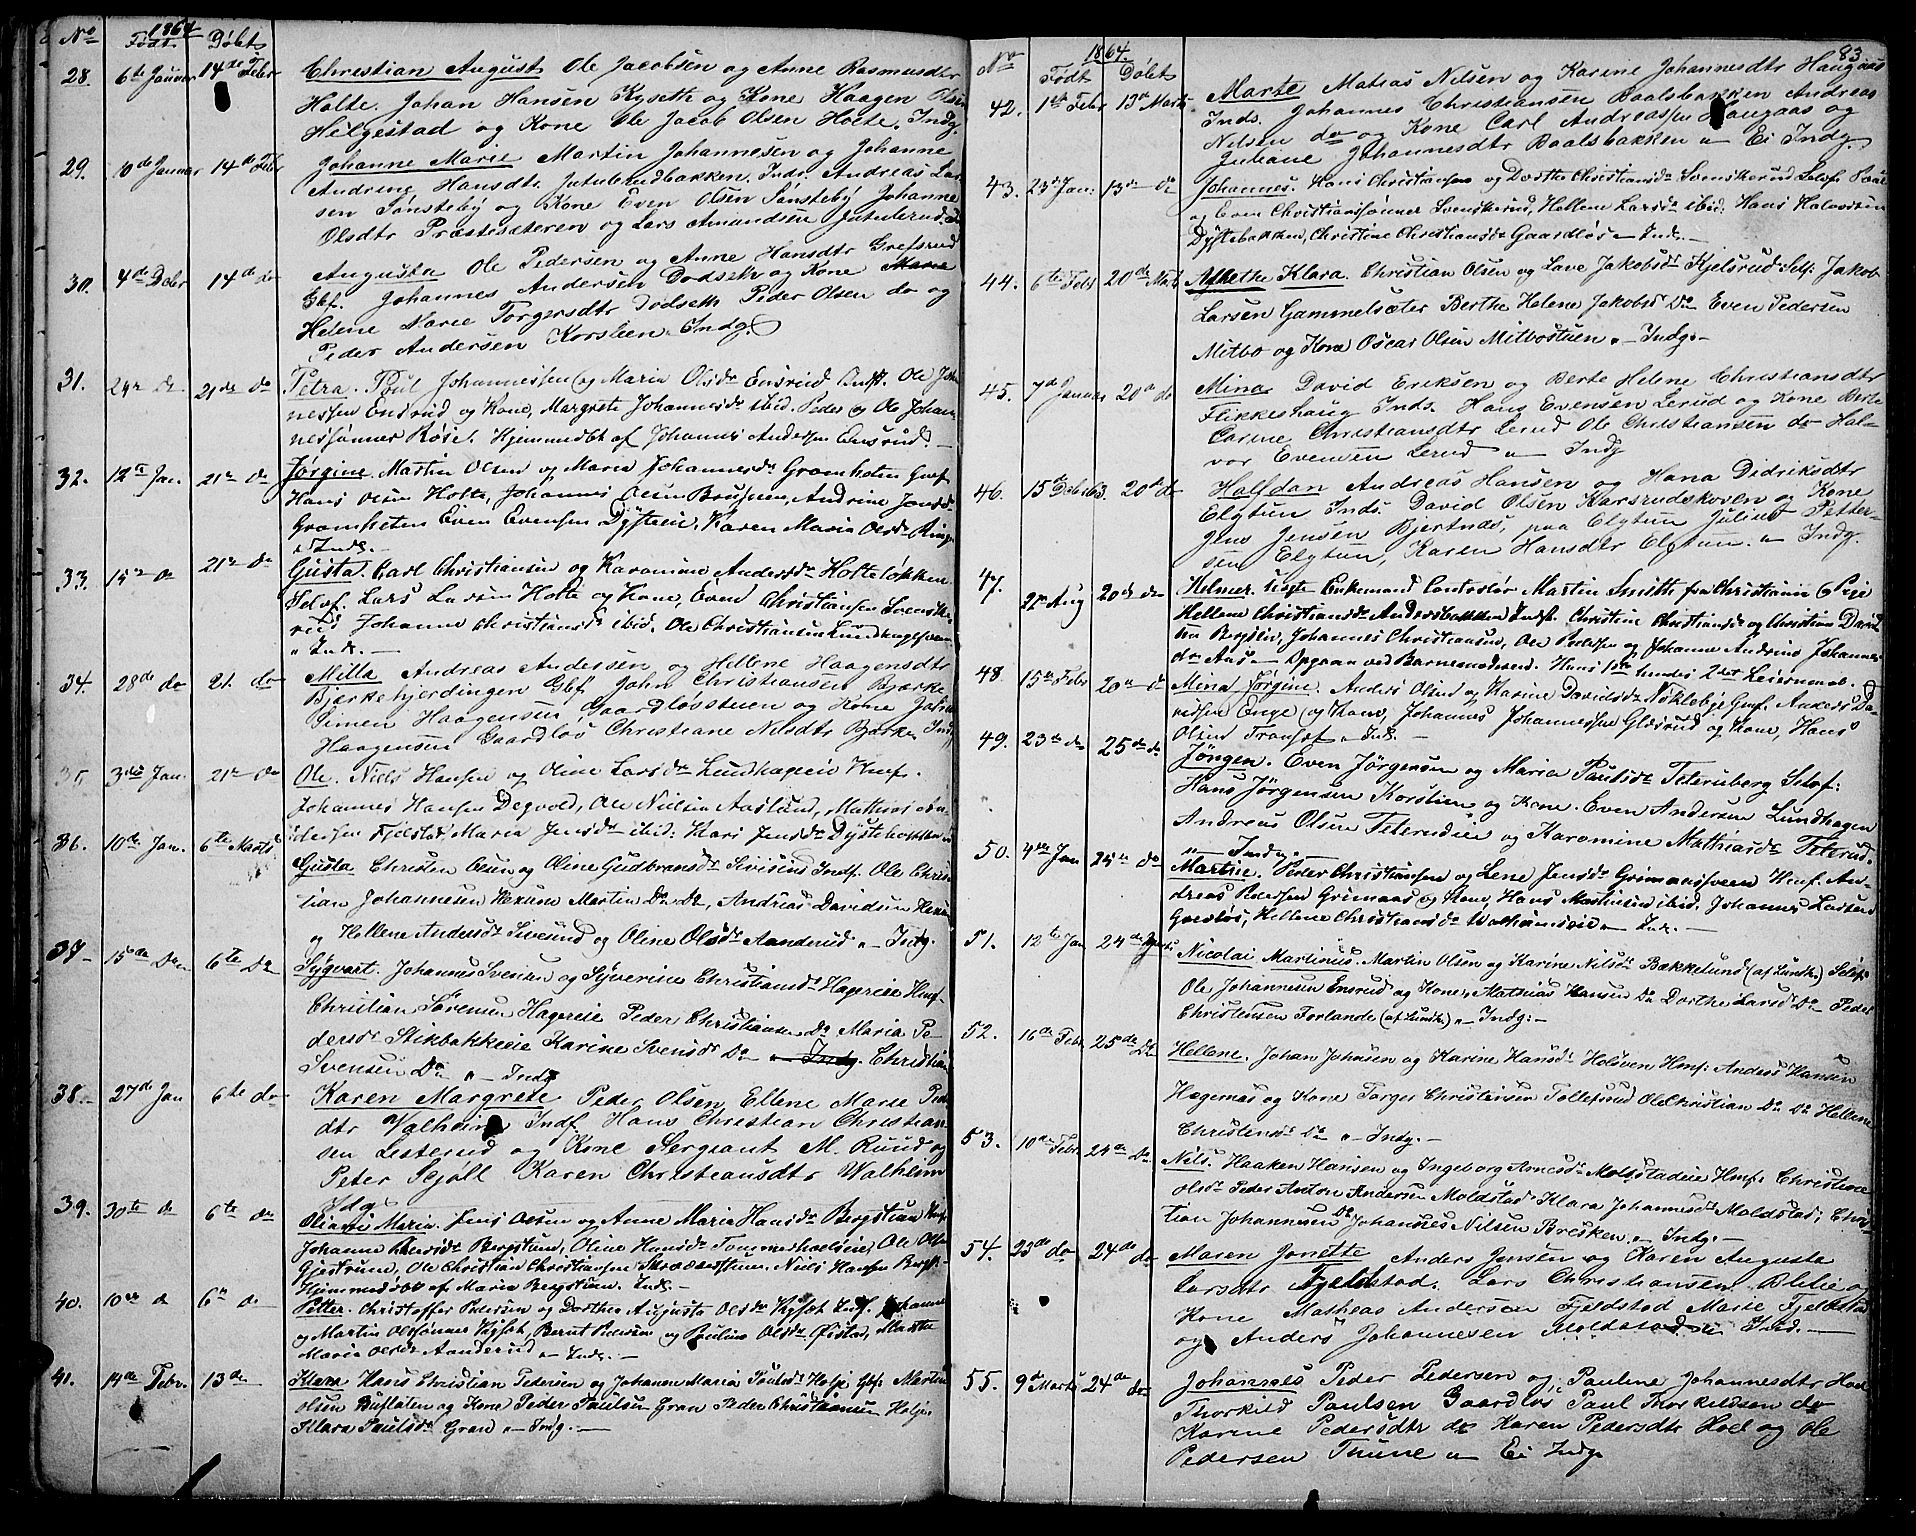 No 1864 Født Døbt
28 6te Januar 14de Febr Christian August Ole Jacobsen og Anne Rasmusdtr
Holte. Johan Hansen Kyseth og Kone Haagen Olsen
Helgestad og Kone Ole Jacob Olsen Holte. Indg.
29. 10de Januar 14de Febr Johanne Marie Martin Johannesen og Johanne
Andrine Hansdtr. Inds. Andreas Lar-
sen Sønsteby og Kone Even Olsen Sønsteby Johanne
Olsdtr Præstesæteren og Lars Amundsen
30. 4de Debr 14de do Augusta Ole Pedersen og Anne Hansdtr Grefsrud
Gbf. Johannes Andersen Dodseth og Kone Marie
Helene Marie Torgersdtr Dodseth Peder Olsen do og
Peder Andersen Korslien. Indg.
31. 24de do. 21de do Petra. Poul Johannessen og Maria Olsdr Ensrud Indst. Ole Joha
nessen Endrud og Kone, Margrete Johannesdr ibid. Peder og Ole Johan
nessønner Røise. Hjemmedbt af Johannes Andersen Ensrud. —
32. 12te Jan. 21de do Jørgine. Martin Olsen og Maria Johannesdr Gramheten
Hans Olsen Holte, Johannes Olsen Andrine
Gramheten Even Evensen Dysteeie, Karen Maria Olsdr
" Indg. —
33. 15de do 21de do Gusta. Carl Christiansen og Karamine Andersdr Holteløkken
Selvf. Lars Larsen Holte og Kone, Even Christiansen Svenske
rud Johanne Christiansdr ibid. Ole Christiansen
" Ind. —
34. 28de do 21. do Milla Andreas Andersen og Hellene Haagensdtr
Bjerkehjerdingen Gbf. John Christiansen Bjærke
Simen Haagensen Gaardløsstuen og Kone
Haagensen Gaardløs Christiane Nilsdtr Bjærke Indg
35. 3die Jan. 21de do Ole. Niels Hansen og Oline Larsdr Lundhageeie Hmf.
Johannes Hansen Degvold, Ole Nielsen Aaslund, Mathias An-
36. 10de Jan. 6te Marts dersen Fjelstad Maria Jensdr ibid: Kari Jensdr Dystebakken
Gusta Christen Olsen og Oline Gudbrandsdr Sivesind Indf. Ole Chris
tian Johannesen Hexum Martin Do Do, Andreas Davidsen Hexum
og Hellene Andersdr Sivesind og Oline Olsdr Aanderud " Indg.
37 15de Do 6te Do Sygvart. Johannes Svensen og Syverine Christiansdr Hageeie Hmf.
Christian Sørensen Hageeie Peder Christiansen Do Maria Pe-
dersdr Stikbakkeeie Karine Svensdr Do Indg. Christian
Svensen Do " Indg
38. 27de Jan 6te do Karen Margrete Peder Olsen Ellene Marie Peder
dtr Walheim Indf Hans Christian Christian
sen Lesterud og Kone Sergiant M. Ruud og
Peter Skjøll Karen Christiansdtr Walheim
Idg.
39. 30te do 6te do Oliane Maria. Jens Olsen og Anne Maria Hansdr Bergstuen
Johanne Larsdr Bergstuen, Oline Hansdr Ole Olsen
Gjestrum, Ole Christian Christiansen Niels Hansen Berg
Hjemmedøbt af Maria Bergstuen. Ind. —
40. 10de do 6te do. Petter. Christoffer Pedersen og Dorthea Augusta Olsdr Kyset Indf. Johannes
og Martin Olssønner Kyset, Bernt Paulsen og Pauline Olsdr Øistad, Martha
Maria Olsdr Aanderud " Ind. —
41. 14de Febr. 13de Klara Hans Christian Pedersen og Johanne Maria Paulsdr Holje Gbf. Martin
Olsen Buflaten og Kone Peder Paulsen Gran Peder Christiansen Holje
Klara Paulsdr Gran " Indg. —
83
No 1864 Født Døbt
42. 1ste Febr 13de Marts Marte Matias Nilsen og Karine Johannesdtr Haugaas
Inds. Johannes Christiansen Baalsbakken Andreas
Nilsen do og Kone Carl Andreassen Haugaas og
Juliane Johannesdtr Baalsbakken " Ei Indg.
43. 23de Jan. 13de do Johannes. Hans Christiansen og Dorthe Christiansdr Svenskerud Selvf.
og Even Christianssønner Svenskerud, Hellene Larsdr ibid: Hans Halvorsen
Dystebakken, Christine Christiansdr Gaardløs " Ind. —
44. 6te Febr 20de Mts Agnethe Klara. Christian Olsen og Lave Jakobsdr Fjelsrud Self. Jakob
Larsen Gammelsæter Berthe Helene Jakobsdr Do Even Pedersen
Mitbo og Kone Oscar Olsen Mitbostuen. — Indg. —
45. 7de Januar 20de do Mina David Eriksen og Berte Helene Christiansdtr
Flikkeshaug Inds. Hans Evensen Lerud og Kone Berte
Carine Christiansdtr Lerud Ole Christiansen do Hal-
vor Evensen Lerud " Indg
46. 15de Debr 63. 20de do Halfdan Andreas Hansen og Hana Didriksdtr
Elgtun Inds. David Olsen Karsrudskoven og Kone
Jens Jensen Bjertnæs, paa Elgtun Julius Petter-
sen Elgtun, Karen Hansdtr Elgtun. " Indg.
47. 21de Aug 20de do Helmer uægte Enkemand Contorlør Martin Smith fra Christiania & Pige
Hellene Christiansdr Andersbakken Indst. Christine Christiansdr og Christian David
sen Bergslie, Johannes Christiansen, Ole Pedersen og Johanne Andrine Johannes
dr Aas — Opgivn ved Barnemoderen. Hans 1ste hendes 2det Leiermaal.
48. 15de Febr 20de do Mina Jørgine. Anders Olsen og Karine Davidsdr Nøklebye Gmf. Anders Da-
vidsen Enge og Kone, Johannes Johannessen Glæsrud og Kone, Hans
Olsen " Ind. —
49. 23de do 25de do Jørgen. Even Jørgensen og Maria Paulsdr Teterudberg Selvf:
Hans Jørgensen Korslien og Kone. Even Andersen Lundhagen
Andreas Olsen Teterudeie og Karomine Mathiasdr Teterud.
" Indg. —
50. 4de Jan 25de do Martine. Peder Christiansen og Lene Jensdr Grimaasveen Hmf. An-
dreas Pedersen Grimaas og Kone, Hans Martinsen ibid. Johannes Larsen
Gaardløs, Hellene Christiansdr Walhemseie " Ind. —
51. 12te Jan 24de Marts Nicolai Martinus. Martin Olsen og Karine Nilsdr Bækkelund (af Lundh.) Selvf.
Ole Johannesen Ensrud og Kone, Mathias Hansen Do Dorthe Larsdr Do Peder
Christensen Forlande (af Lundh.) " Indg: —
52. 16de Febr. 25de Do Hellene. Johan Johnsen og Karine Hansdr Holsveen Hmf: Anders Hansen
Hægernæs og Kone Torger Christensen Tollefsrud Ole Christian Do Do Hellene
Christensdr Do " Indg. —
53. 10de Febr 24de Do Nils. Haaken Hansen og Ingeborg Arnesdr Moldstadeie Hmf: Christine
Olsdr Peder Anton Andersen Moldstad Klara Johannesdr Moldstad; Chris-
tian Johannesen Do Johannes Nilsen Bresken. " Indg. —
54. 23de do 24de do Maren Jonette Anders Jensen og Karen Augusta
Larsdtr Fjeldstad. Lars Christiansen Blilie og
Kone Mathias Andersen Fjeldstad Marie Fjeldstad
og Anders Johannesen Moldstad Ind. —
55. 9de Marts 24de do Johannes Peder Pedersen og Pauline Johannesdtr Hoel
Thorkild Paulsen Gaardløs Paul Thorkildsen do
Karine Pedersdtr do Karen Pedersdtr Hoel og Ole
Pedersen Thune " Ei Indg